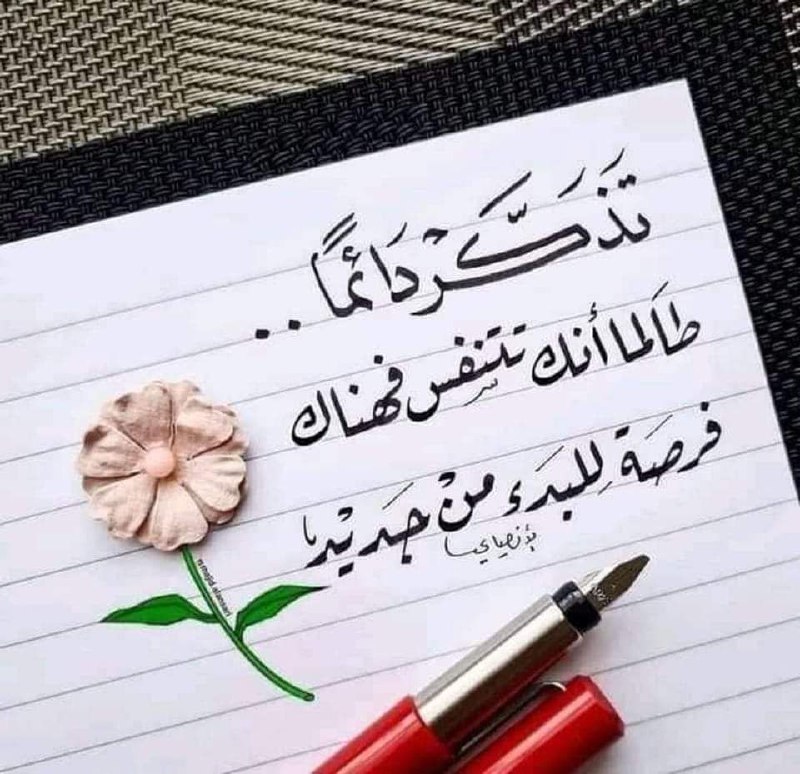 تَذَكَّرْ دَائمًا..
طَالما أنك تتنفس فهناك
فرصَة لِلبَدَء منْ جَديْد